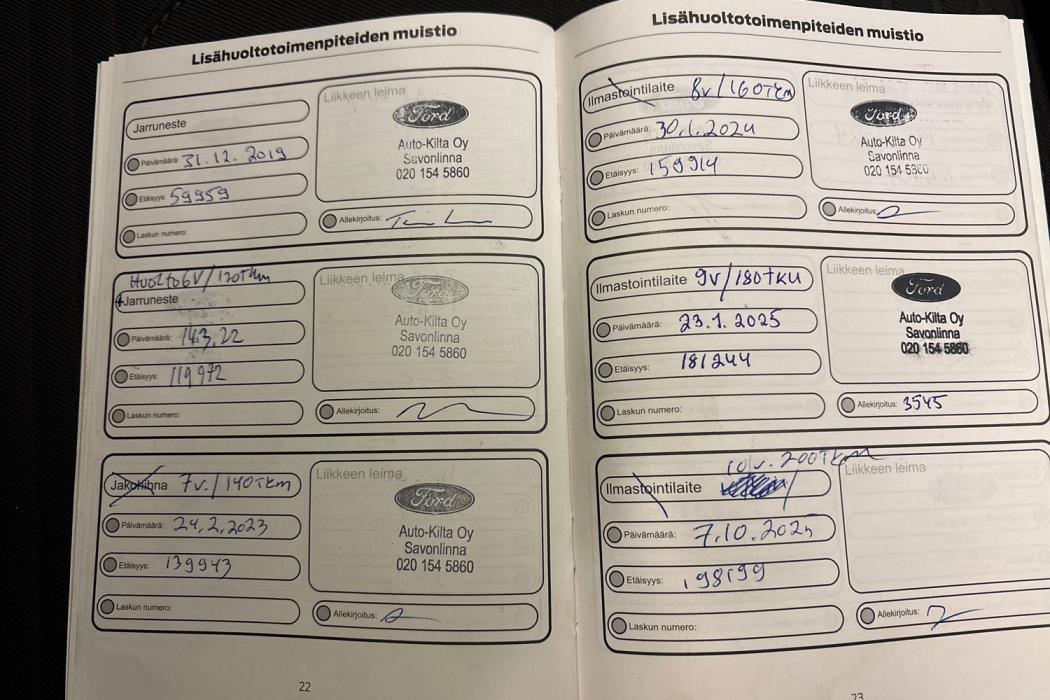 Lisähuoltotoimenpiteiden muistio
Jarruneste
Päivämäärä: 31.12. 2019
Etäisyys: 59959
Laskun numero:
Liikkeen leima
Ford
Auto-Kilta Oy
Savonlinna
020 154 5860
Allekirjoitus:
Huolto 6V/120Tkm
+Jarruneste
Päivämäärä: 14.3.22
Etäisyys: 119972
Laskun numero:
Liikkeen leima
Ford
Auto-Kilta Oy
Savonlinna
020 154 5860
Allekirjoitus:
Jakohihna 7v./140Tkm
Päivämäärä: 24.2.2023
Etäisyys: 139943
Laskun numero:
Liikkeen leima
Ford
Auto-Kilta Oy
Savonlinna
020 154 5860
Allekirjoitus:
22
Lisähuoltotoimenpiteiden muistio
Ilmastointilaite 8v/160Tkm
Päivämäärä: 30.1.2024
Etäisyys: 159914
Laskun numero:
Liikkeen leima
Ford
Auto-Kilta Oy
Savonlinna
020 154 5860
Allekirjoitus:
Ilmastointilaite 9v/180TKM
Päivämäärä: 23.1.2025
Etäisyys: 181244
Laskun numero:
Liikkeen leima
Ford
Auto-Kilta Oy
Savonlinna
020 154 5860
Allekirjoitus: 3545
10v. 200Tkm
Ilmastointilaite
Päivämäärä: 7.10.2025
Etäisyys: 198199
Laskun numero:
Liikkeen leima
Allekirjoitus:
23